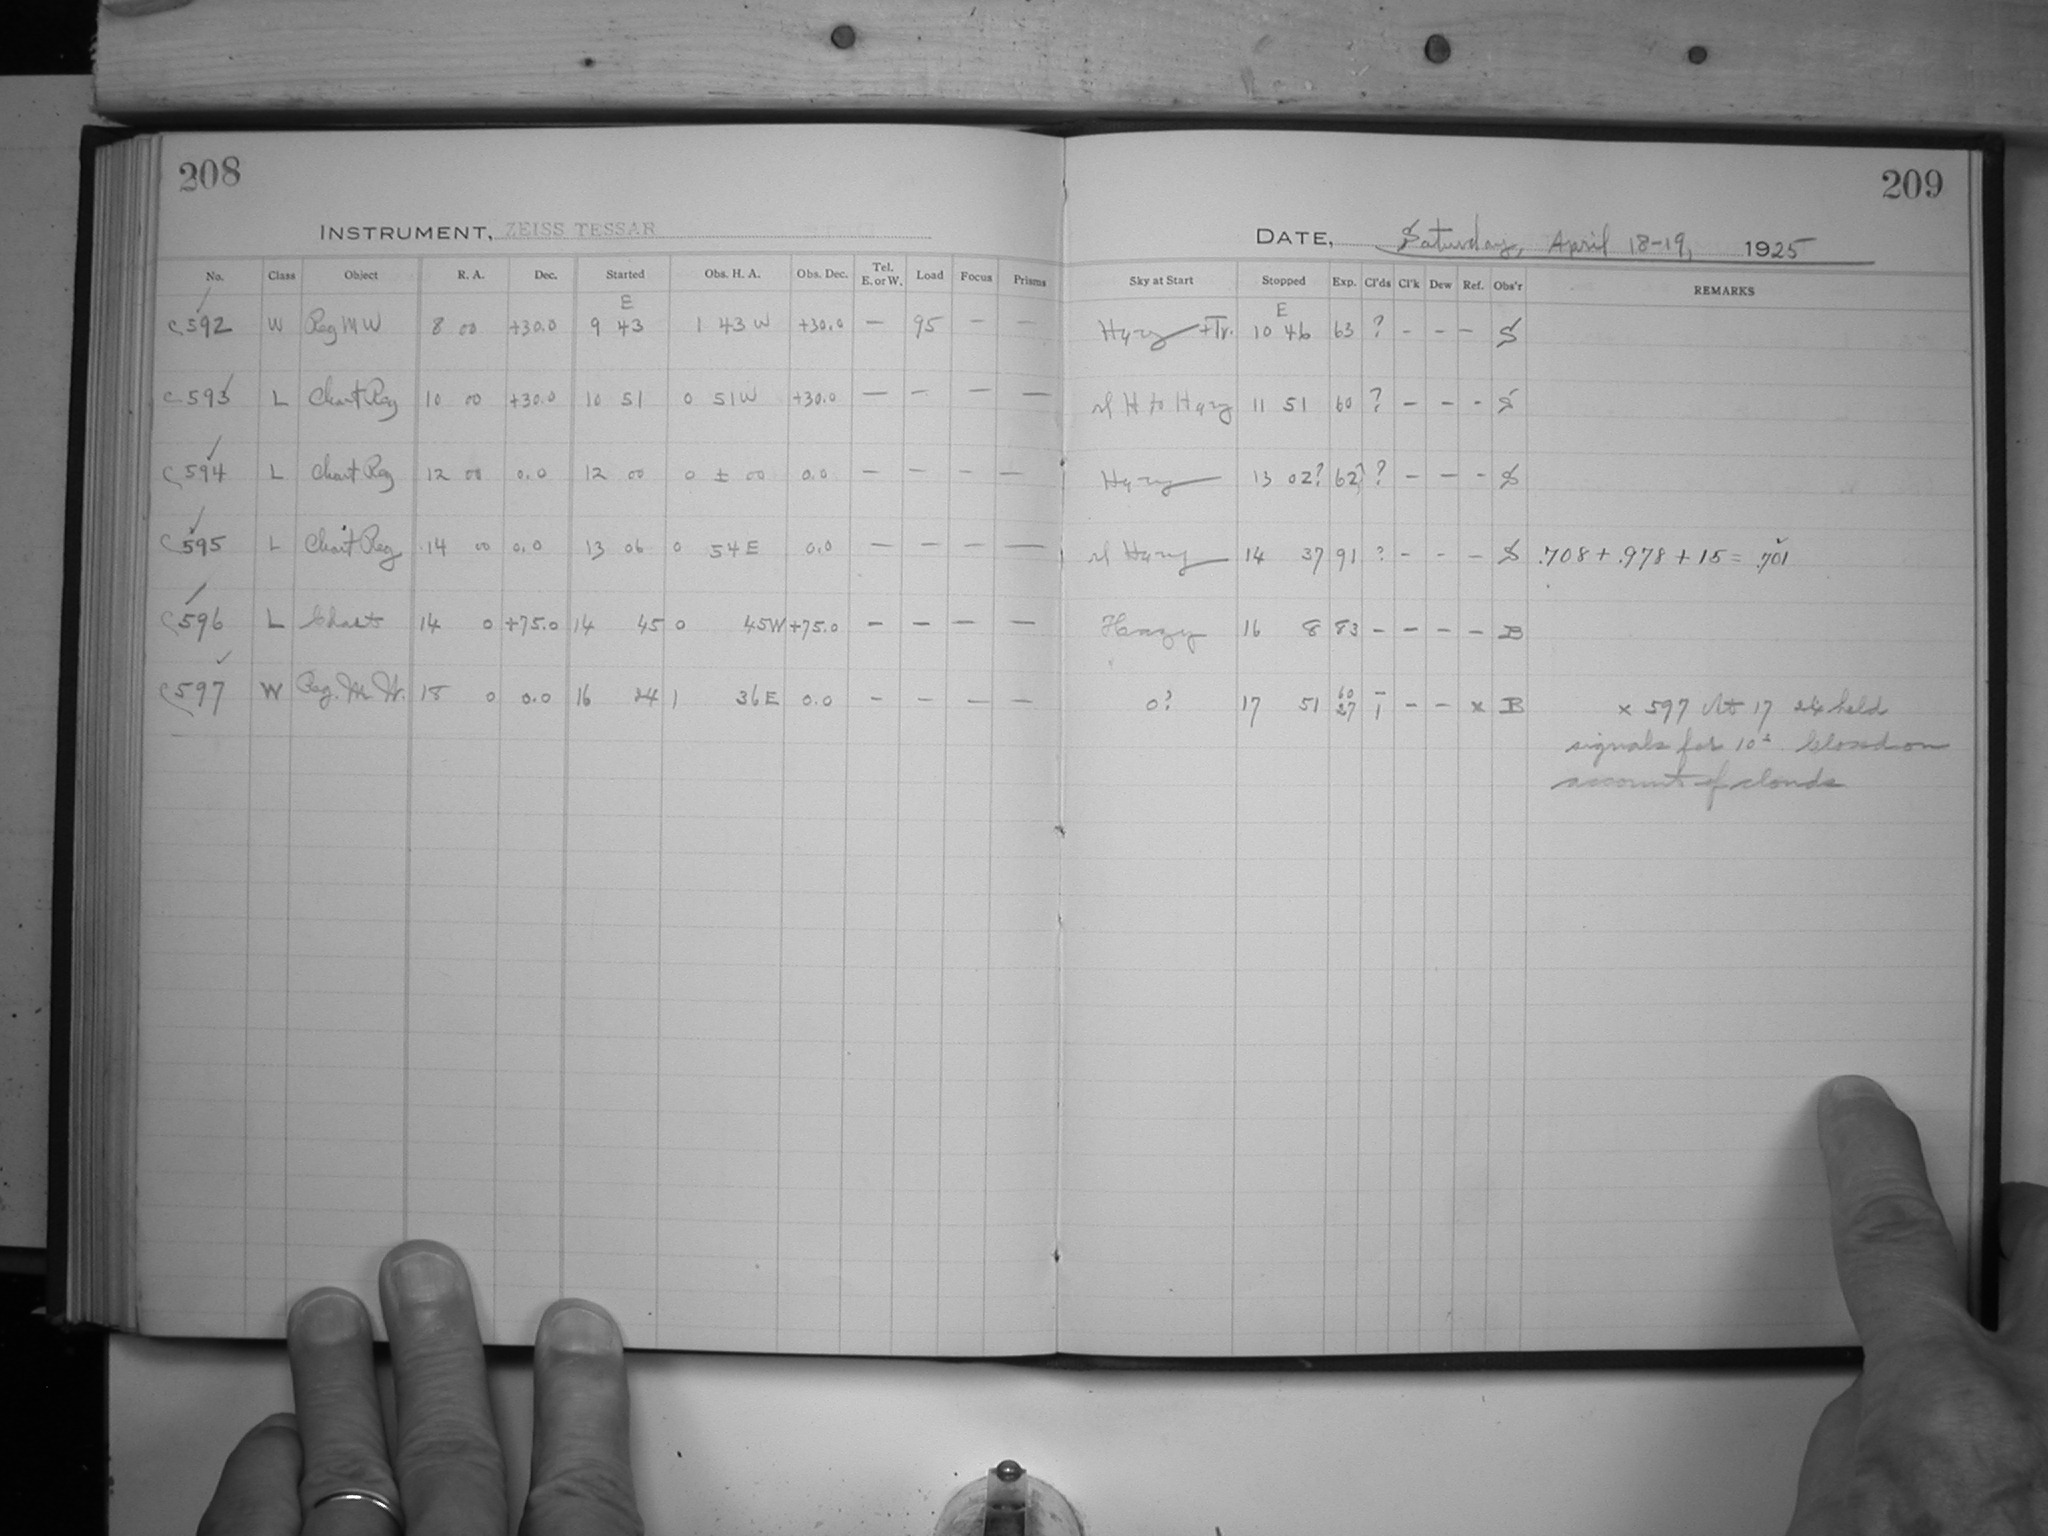 208
209
INSTRUMENT, ZEISS TESSAR
DATE, Saturday, April 18-19, 1925
No. Class Object R. A. Dec. Started Obs. H. A. Obs. Dec. Tel. E. or W. Load Focus Prisms Sky at Start Stopped Exp. Cl'ds Cl'k Dew Ref. Obs'r REMARKS
E E
c592 W Reg M W 8 00 +30.0 9 43 1 43 W +30.0 — 95 — — Hazy +Tr. 10 46 63 ? - - - S
c593 L Chart Reg 10 00 +30.0 10 51 0 51 W +30.0 — — — — sl H to Hazy 11 51 60 ? - - - S
c594 L Chart Reg 12 00 0.0 12 00 0 ± 00 0.0 — — — — Hazy 13 02? 62? ? - - - S
c595 L Chart Reg 14 00 0.0 13 06 0 54 E 0.0 — — — — sl Hazy 14 37 91 ? - - - S .708 + .978 + 15 = .701
c596 L Chart 14 0 +75.0 14 45 0 45 W +75.0 — — — — Hazy 16 8 83 - - - - B
c597 W Reg. M. W. 18 0 0.0 16 24 1 36 E 0.0 — — — — 0? 17 51 60 27 — 1 - - x B x 597 At 17 24 held
signals for 10s Closed on
account of clouds